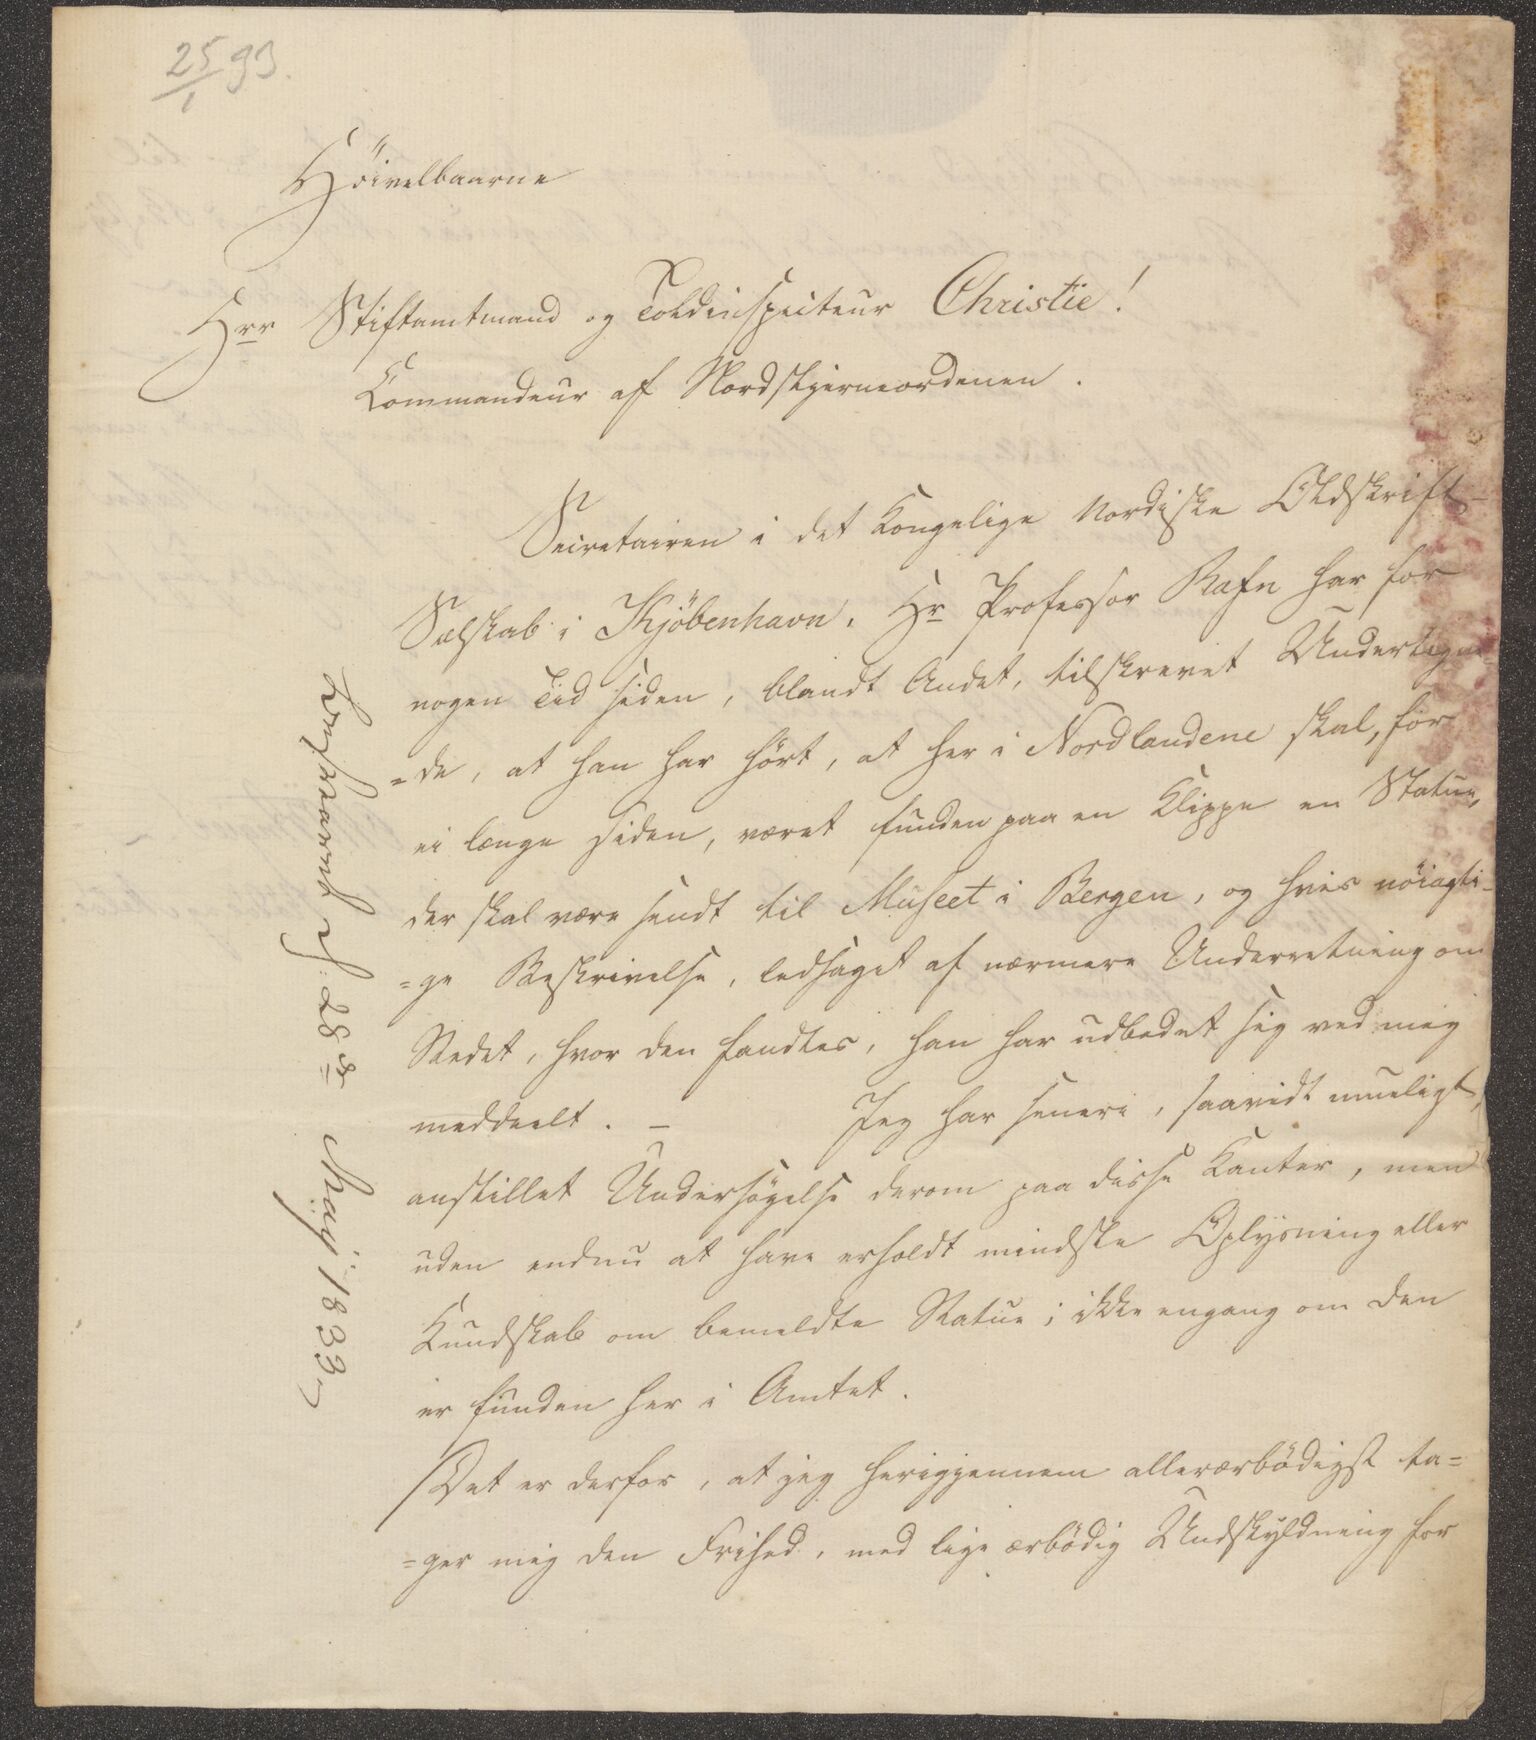 25/1 93.
Höivelbaarne
Hrr Stiftamtmand og Toldinspecteur Christie!
Commandeur af Nordstjerneordenen.
Secretairen i det Kongelige Nordiske Oldskrift-
Selskab i Kjöbenhavn, Hr Professor Rafn har for
nogen Tid siden, blandt Andet, tilskrevet Undertegne
=de, at han har hört, at her i Nordlandene skal, for
ei længe siden, været funden paa en Klippe en Statue,
der skal være sendt til Museet i Bergen, og hvis nöiagti-
=ge Beskrivelse, ledsaget af nærmere Underretning om
Stedet, hvor den fandtes, han har udbedet sig ved mig
meddeelt. — Jeg har senere, saavidt mueligt,
anstillet Undersögelse derom paa disse Kanter, men
uden endnu at have erholdt mindste Oplysning eller
Kundskab om bemeldte Statue; ikke engang om den
er funden her i Amtet.
Det er derfor, at jeg herigjennem allerærbödigst ta=
=ger mig den Frihed, med lige ærbödig Undskyldning for
Besvaret d. 28de Maÿ 1833